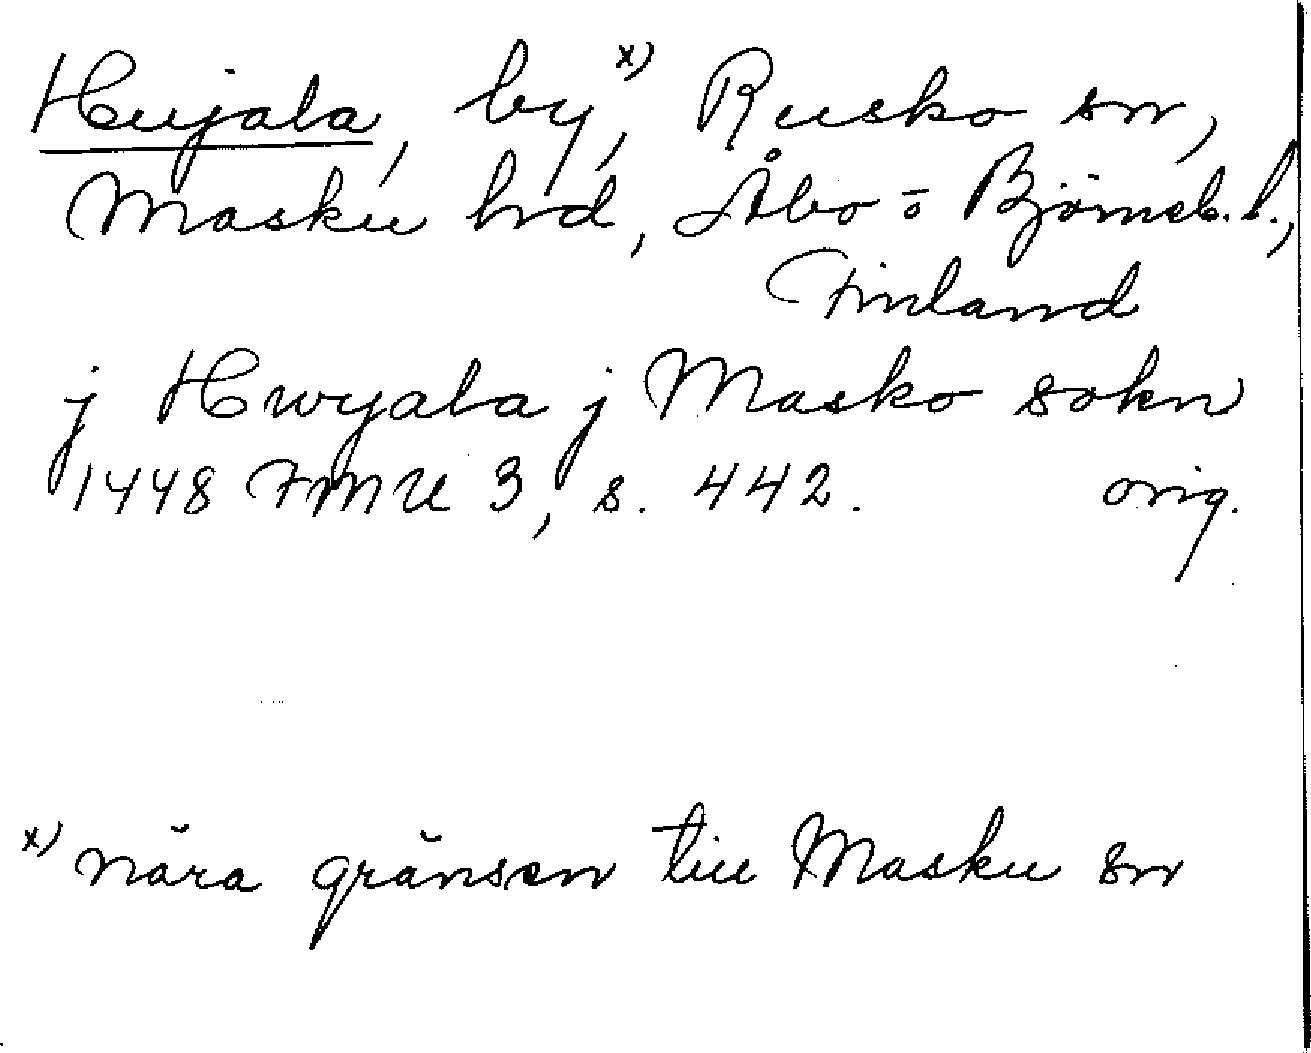 Hujala, by, x) Rusko sn,
Masku hd, Åbo o Björneb. l.,
Finland
j Hwyala j Masko sokn
1448 FMU 3, s. 442. orig.
x) nära gränsen till Masku sn